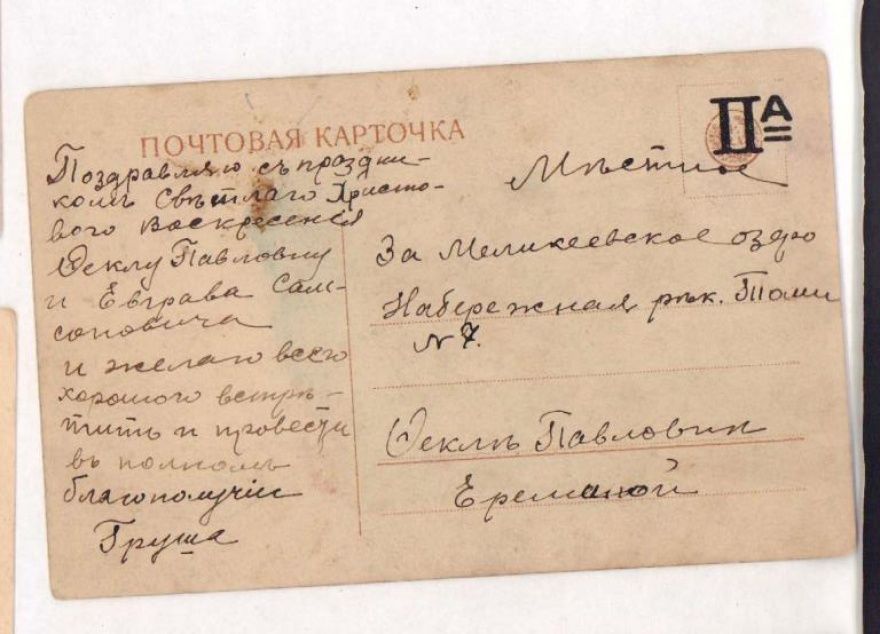 ПОЧТОВАЯ КАРТОЧКА
Поздравляю съ праздни-
комъ Свѣтлаго Христо-
вого Воскресенія
Ѳеклу Павловну
и Евграва Сам-
соновича
и желаю всего
хорошого встрѣ-
тить и провести
въ полномъ
благополучіи
Груша
IIА
Мѣстное
За Меликеевское озеро
Набережная рѣк. Томи
№ 7.
Ѳеклѣ Павловни
Ереминой